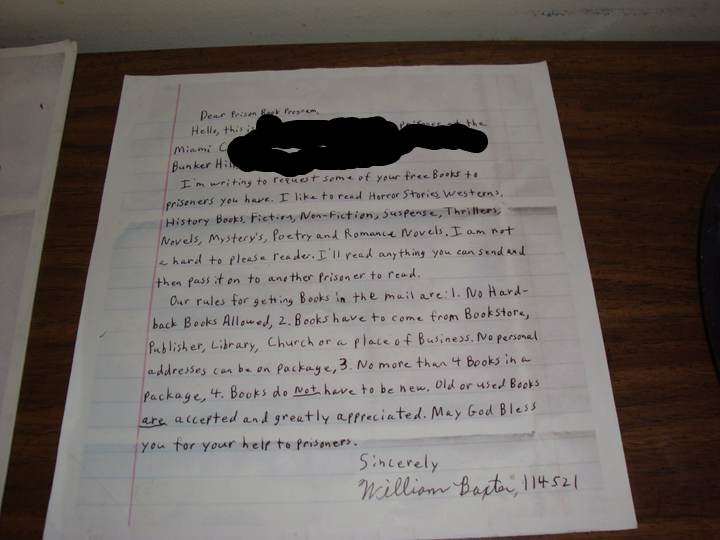 Dear Prison Book Program,
Hello, this is prisoner at the
Miami C
Bunker Hil
I'm writing to request some of your free Books to
prisoners you have. I like to read Horror Stories, Westerns,
History Books, Fiction, Non-Fiction, Suspense, Thrillers,
Novels, Mystery's, Poetry and Romance Novels. I am not
a hard to please reader. I'll read anything you can send and
then pass it on to another prisoner to read.
Our rules for getting Books in the mail are: 1. No Hard-
back Books Allowed, 2. Books have to come from Bookstore,
Publisher, Library, Church or a place of Business. No personal
addresses can be on package, 3. No more than 4 Books in a
package, 4. Books do not have to be new. Old or used Books
are accepted and greatly appreciated. May God Bless
you for your help to prisoners.
Sincerely
William Baxter, 114521